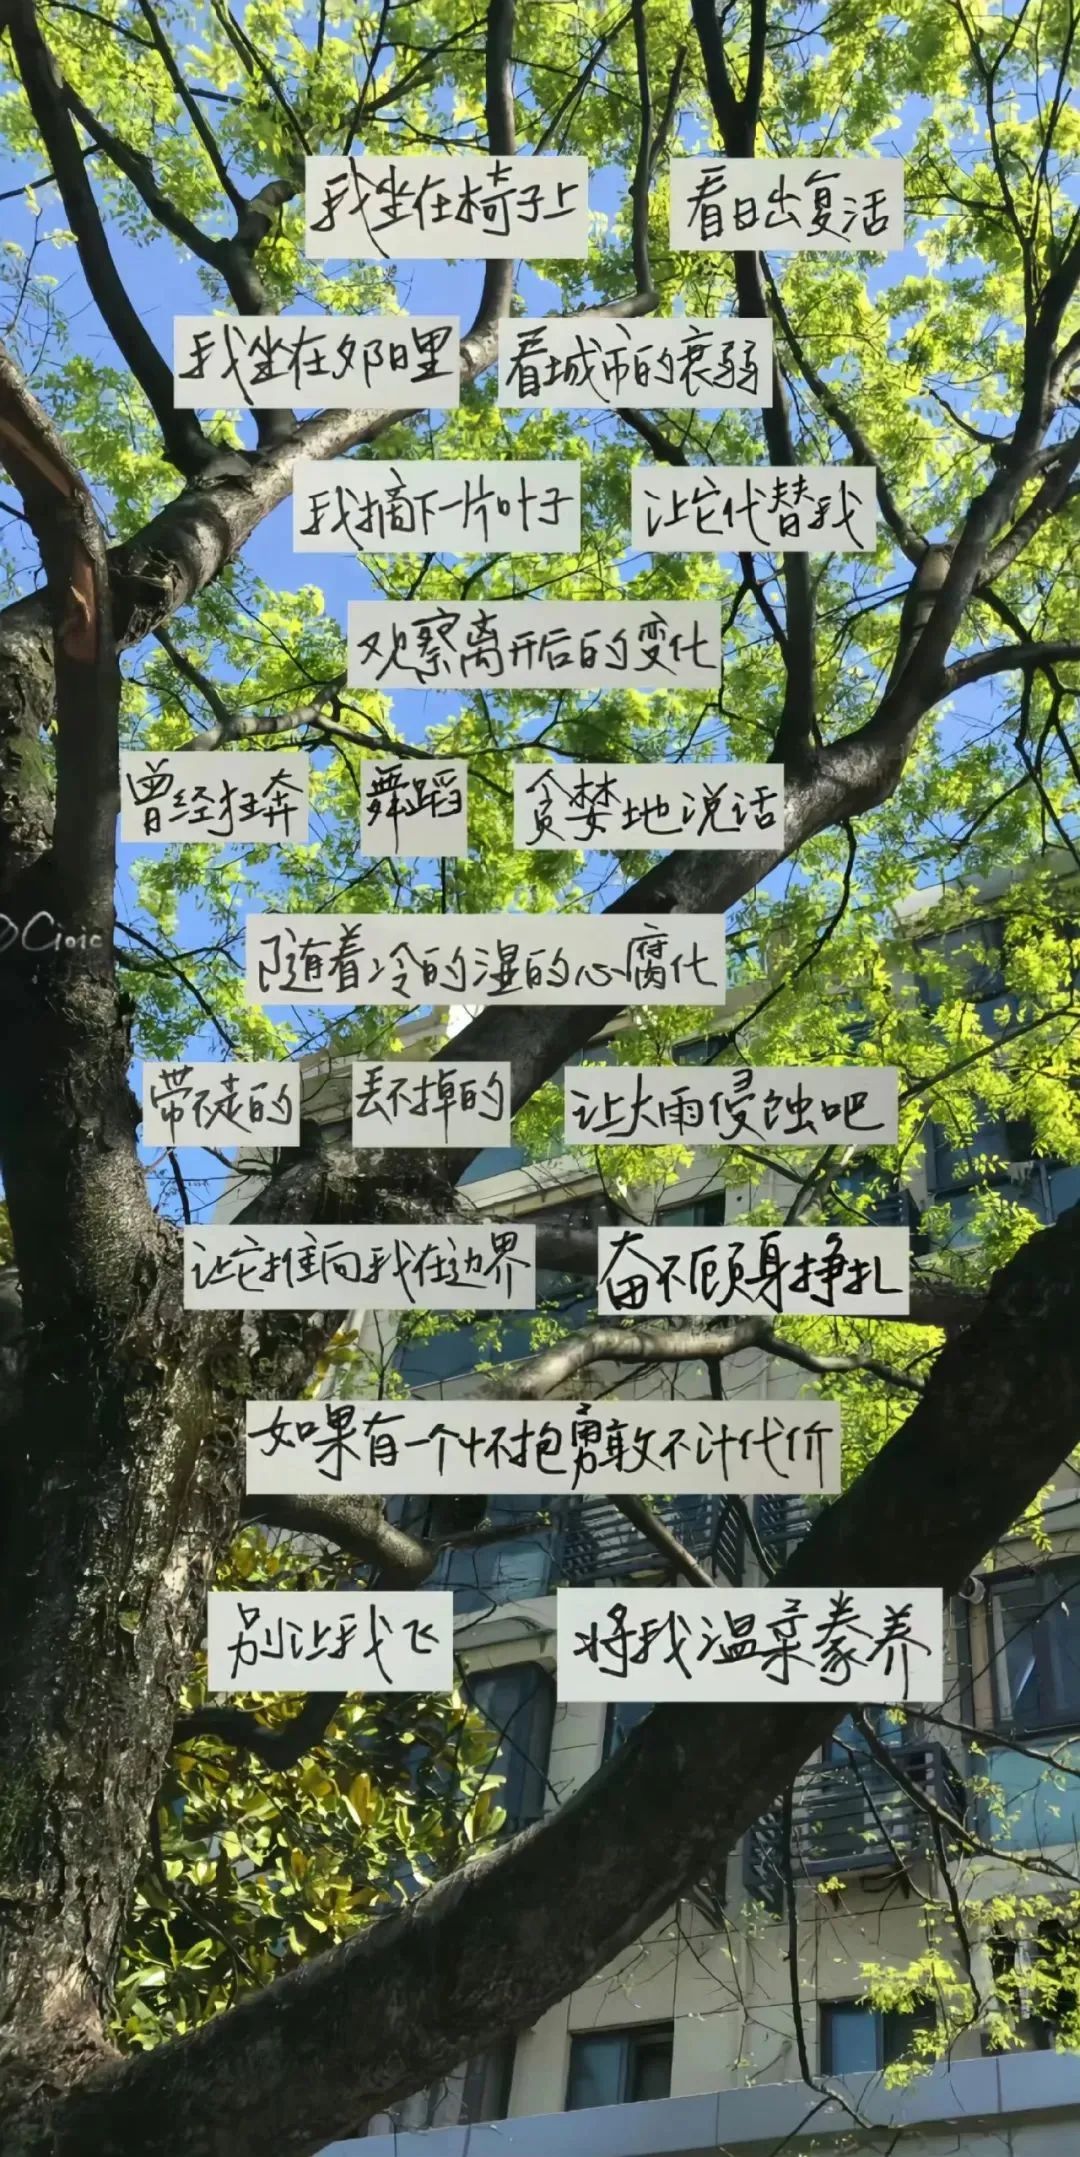 我坐在椅子上 看日出复活
我坐在夕阳里 看城市的衰弱
我摘下一片叶子 让它代替我
观察离开后的变化
曾经狂奔 舞蹈 贪婪地说话
随着冷的湿的心腐化
带不走的 丢不掉的 让大雨侵蚀吧
让它推向我在边界 奋不顾身挣扎
如果有一个怀抱勇敢不计代价
别让我飞 将我温柔豢养